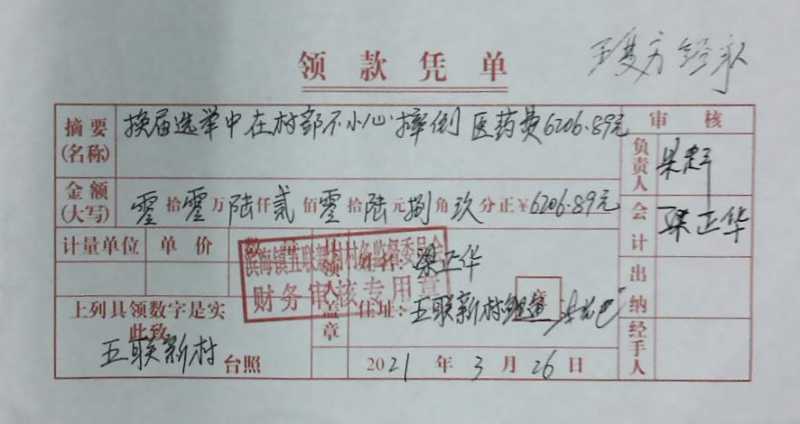 领款凭单
摘要
(名称)
换届选举中在村部不小心摔倒 医药费6206.89元
审核
负责人
金额
(大写)
零拾零万陆仟贰佰零拾陆元捌角玖分正¥6206.89元
会计
梁正华
计量单位 单价
姓名: 梁正华
滨海镇五联新村村务监督委员会
财务审核专用章
盖章
住址: 五联新村
出纳
上列具领数字是实
此致
五联新村 台照
2021年3月26日
经手人